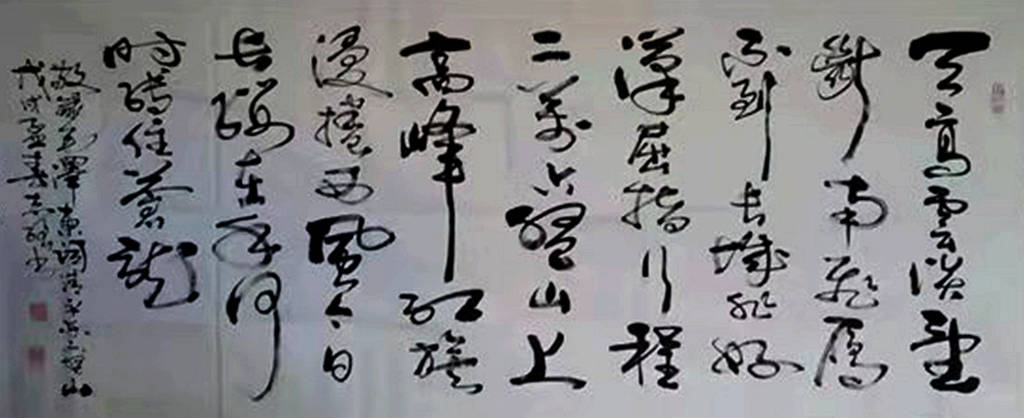 天高雲淡望
斷南飛雁
不到長城非好
漢屈指行程
二萬六盤山上
高峰紅旗
漫捲西風今日
長纓在手何
時縛住蒼龍
敬錄毛澤東詞清平樂六盤山
戊戌孟春志強书